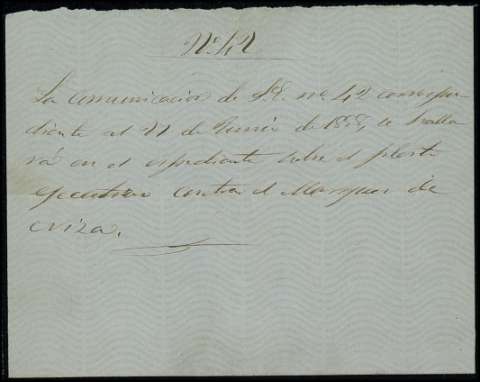 Nº 42
La comunicacion de S.E. nº 42 correspon-
diente al 21 de Junio de 185, se halla
rá en el espediente sobre el pleito
egecutivo contra el Marques de